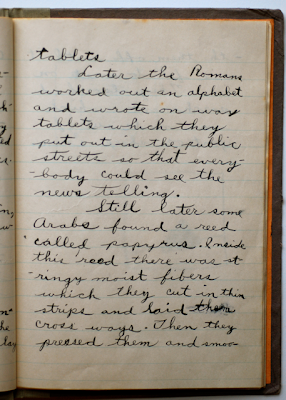 tablets
Later the Romans
worked out an alphabet
and wrote on wax
tablets which they
put out in the public
streets so that every-
-body could see the
news telling.
Still later some
Arabs found a reed
called papyrus. Inside
this reed there was st-
ringy moist fibers
which they cut in thin
strips and laid them
cross ways. Then they
pressed them and smoo-